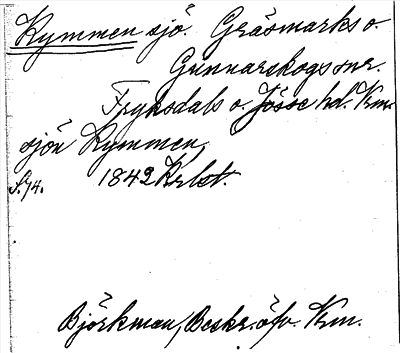 Kymmen sjö. Gräsmarks o.
Gunnarskogs snr.
Fryksdals o. Jösse hd. Krm.
sjön Kymmen,
s. 74. 1842 Krlst.
Björkman, Beskr. öfv. Krm.